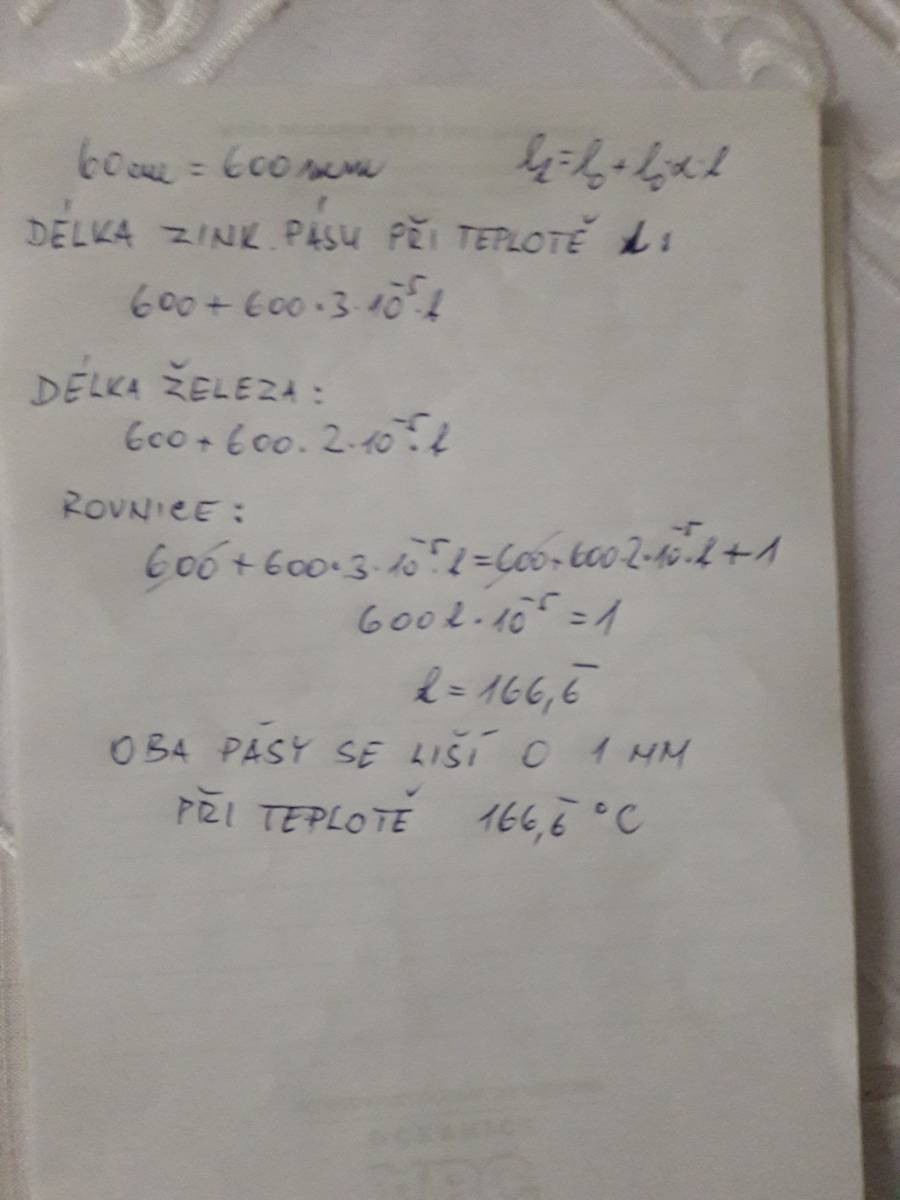 60cm = 600mm l₁=l₀+l₀·α·t
DÉLKA ZINK. PÁSU PŘI TEPLOTĚ t:
600+600·3·10⁻⁵·t
DÉLKA ŽELEZA:
600+600·2·10⁻⁵·t
ROVNICE:
600+600·3·10⁻⁵·t=600+600·2·10⁻⁵·t+1
600t·10⁻⁵=1
t=166,6̅
OBA PÁSY SE LIŠÍ O 1 MM
PŘI TEPLOTĚ 166,6̅ °C